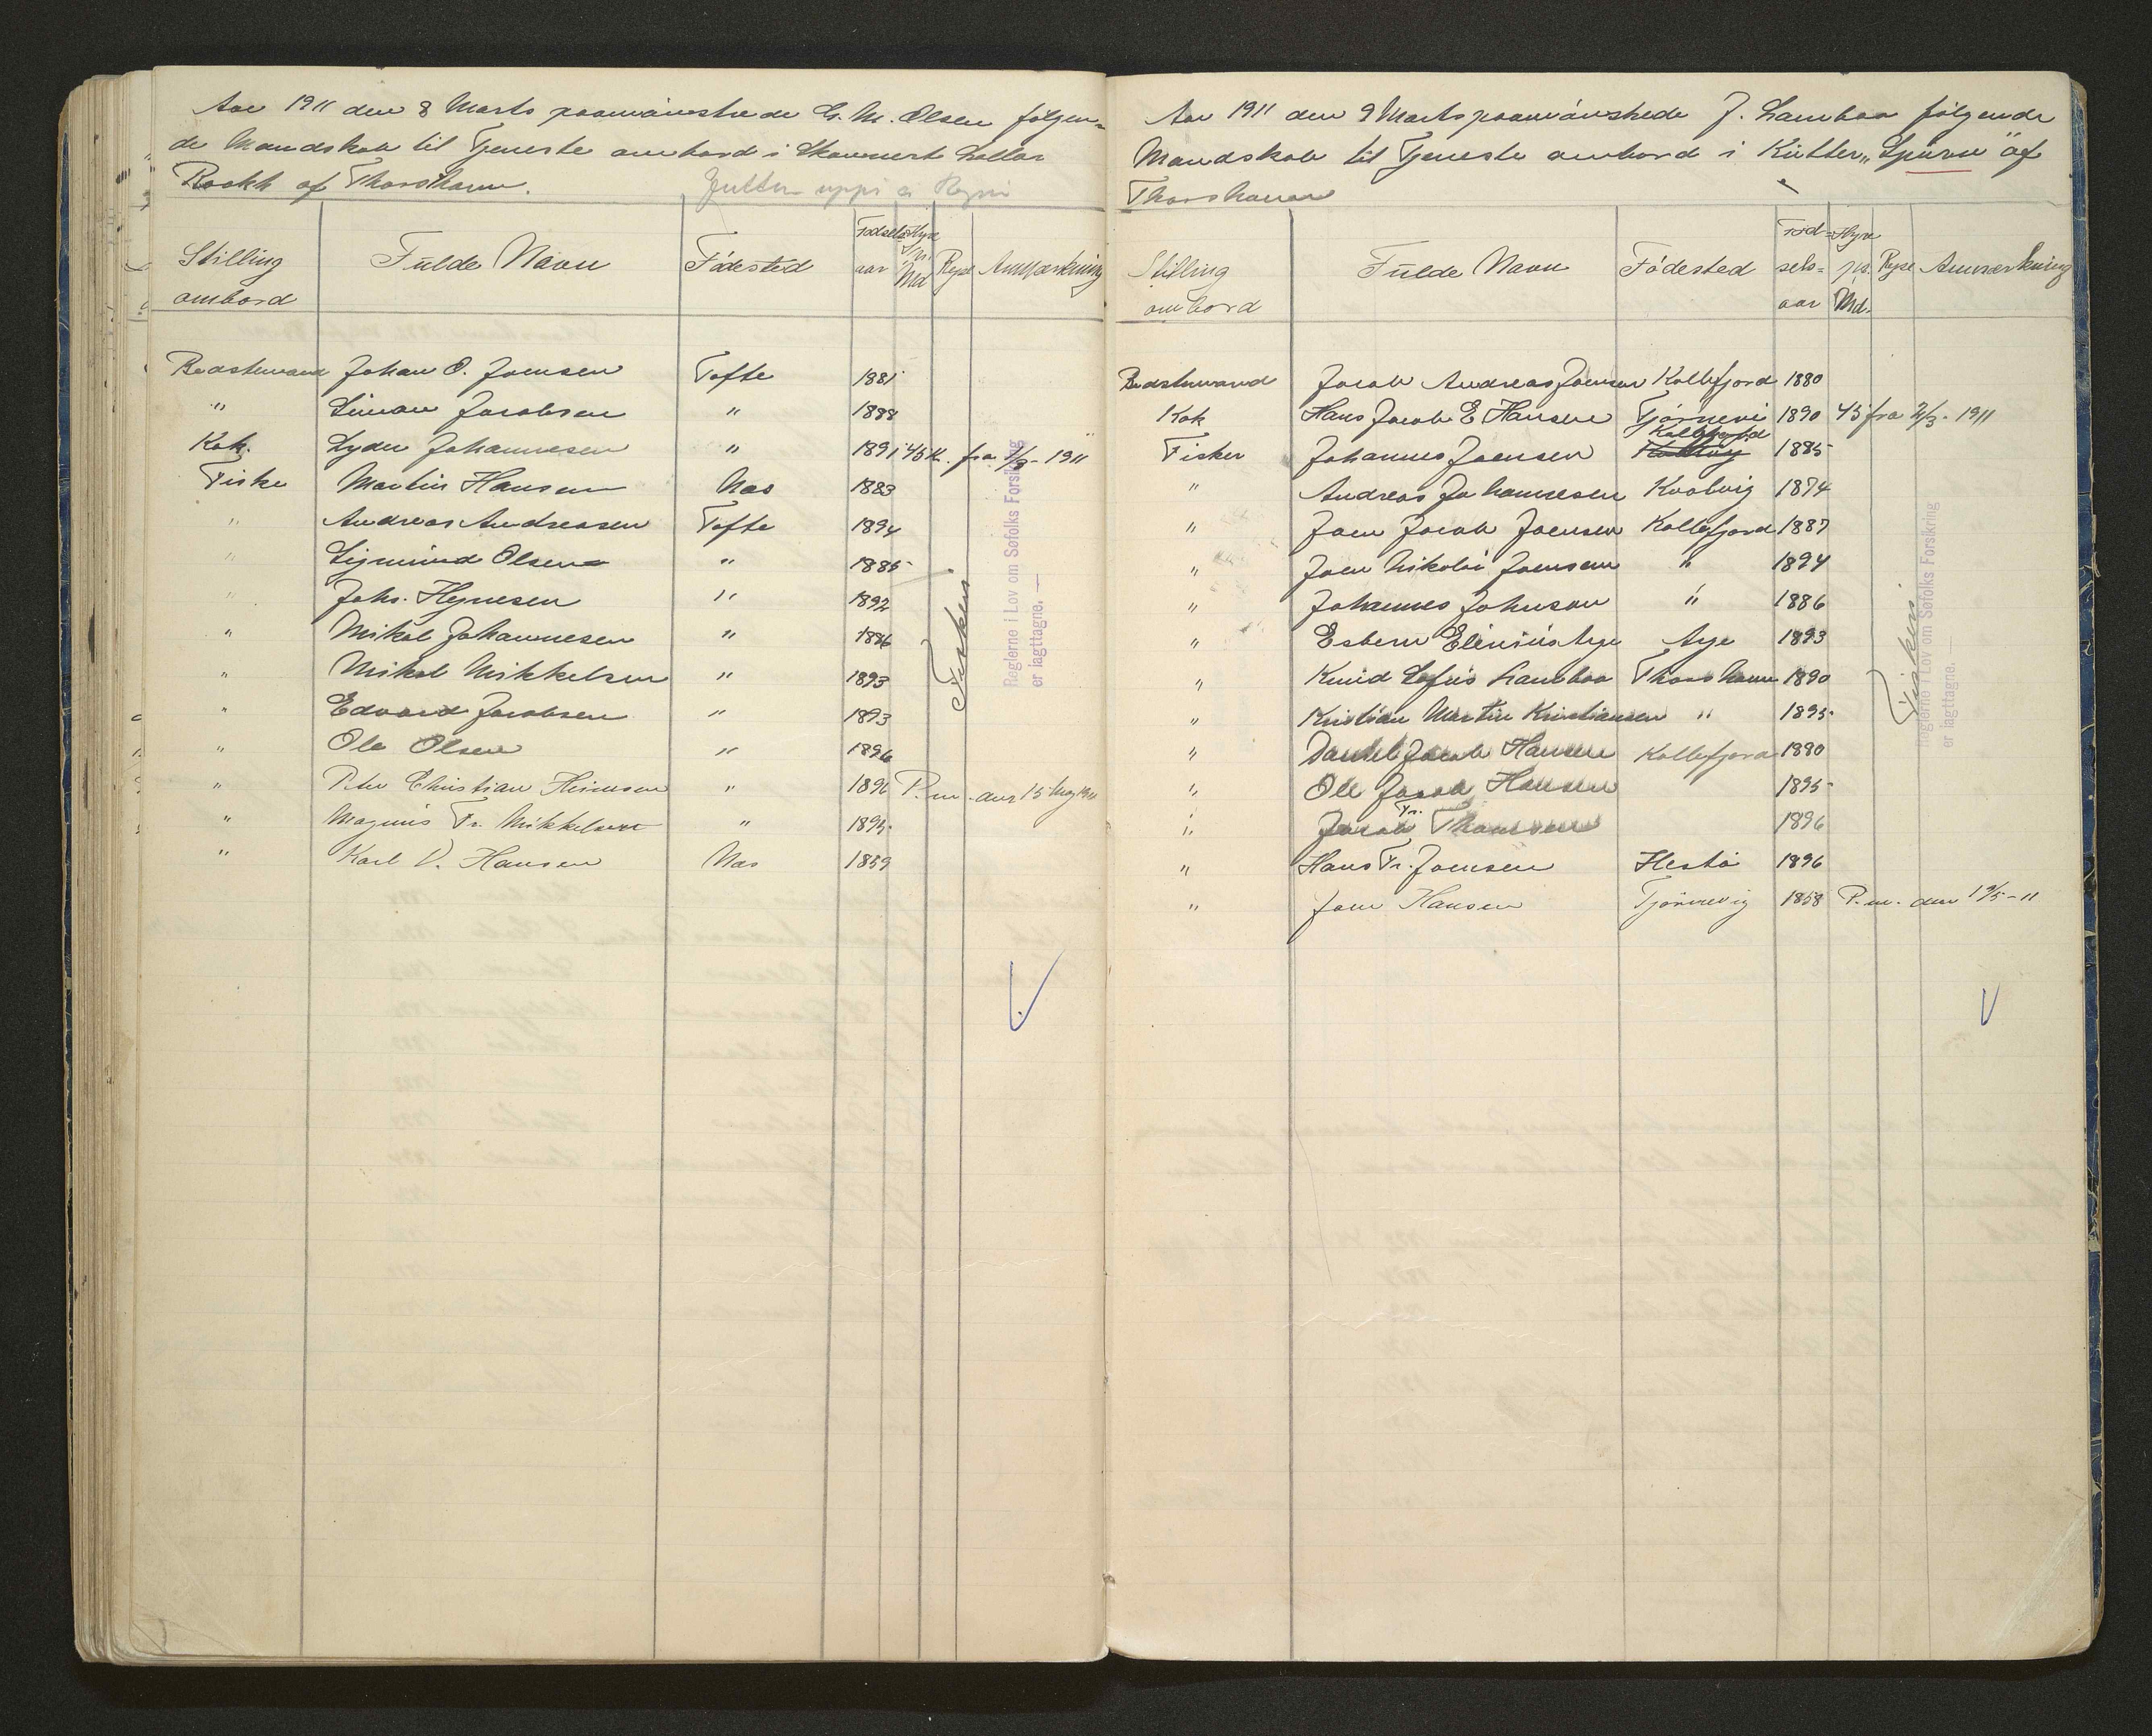 Aar 1911 den 8 Marts paamönstrede G. M. Olsen følgen=
de Mandskab til Tjeneste ombord i Skonnert Lallas
Rookh af Thorshavn.
Stilling ombord Fulde Navn Födested Födsels aar Hyre pr. Md Rejse Anmærkning
Bedstemand Johan O. Joensen Tofte 1881
" Simon Jacobsen " 1888
Kok. Lyder Johannesen " 1891 45 K. fra 1/3 - 1911
Fisker Martin Hansen Nas 1883
" Andreas Andreasen Tofte 1894
" Sigmund Olsen " 1885
" Johs. Hejnesen " 1892
" Mikal Johannesen " 1886
" Mikal Mikkelsen " 1893
" Edvard Jacobsen " 1893
" Ole Olsen " 1896
" Peter Christian Heinesen " 1896 P.m. den 15 Maj 1911
" Magnus Fr. Mikkelsen " 1895
" Karl D. Hansen Nas 1859
Fiskeri
Reglerne i Lov om Søfolks Forsikring
er iagttagne. —
Aar 1911 den 9 Marts paamönstrede J. Lamboa följende
Mandskab til Tjeneste ombord i Kutter „Spurn" af
Thorshavn
Stilling ombord Fulde Navn Födested Föd= sels= aar Hyre pr. Md. Rejse Anmærkning
Bedstemand Jacob Andreas Joensen Kollefjord 1880
Kok Hans Jacob E Hansen Tjørnevi 1890 45 fra 2/3 - 1911
Fisker Johannes Joensen Kollefjord 1885
" Andreas Johannesen Kvalvig 1874
" Joen Jacob Joensen Kollefjord 1887
" Joen Nikolai Joensen " 1894
" Johannes Johnson " 1886
" Esbern Elinius Aye Aye 1893
" Knud Sofus Lamboa Thorshavn 1890
" Kristian Martin Kristiansen " 1895
" Daniel Jacob Hansen Kollefjord 1890
" Ole Jacob Hansen 1895
" Jacob Fr. Thomsen 1896
" Hans Fr. Joensen Hestö 1896
" Joen Hansen Tjörnevig 1858 P.m. den 19/5 - 11
Fiskeri
Reglerne i Lov om Søfolks Forsikring
er iagttagne. —